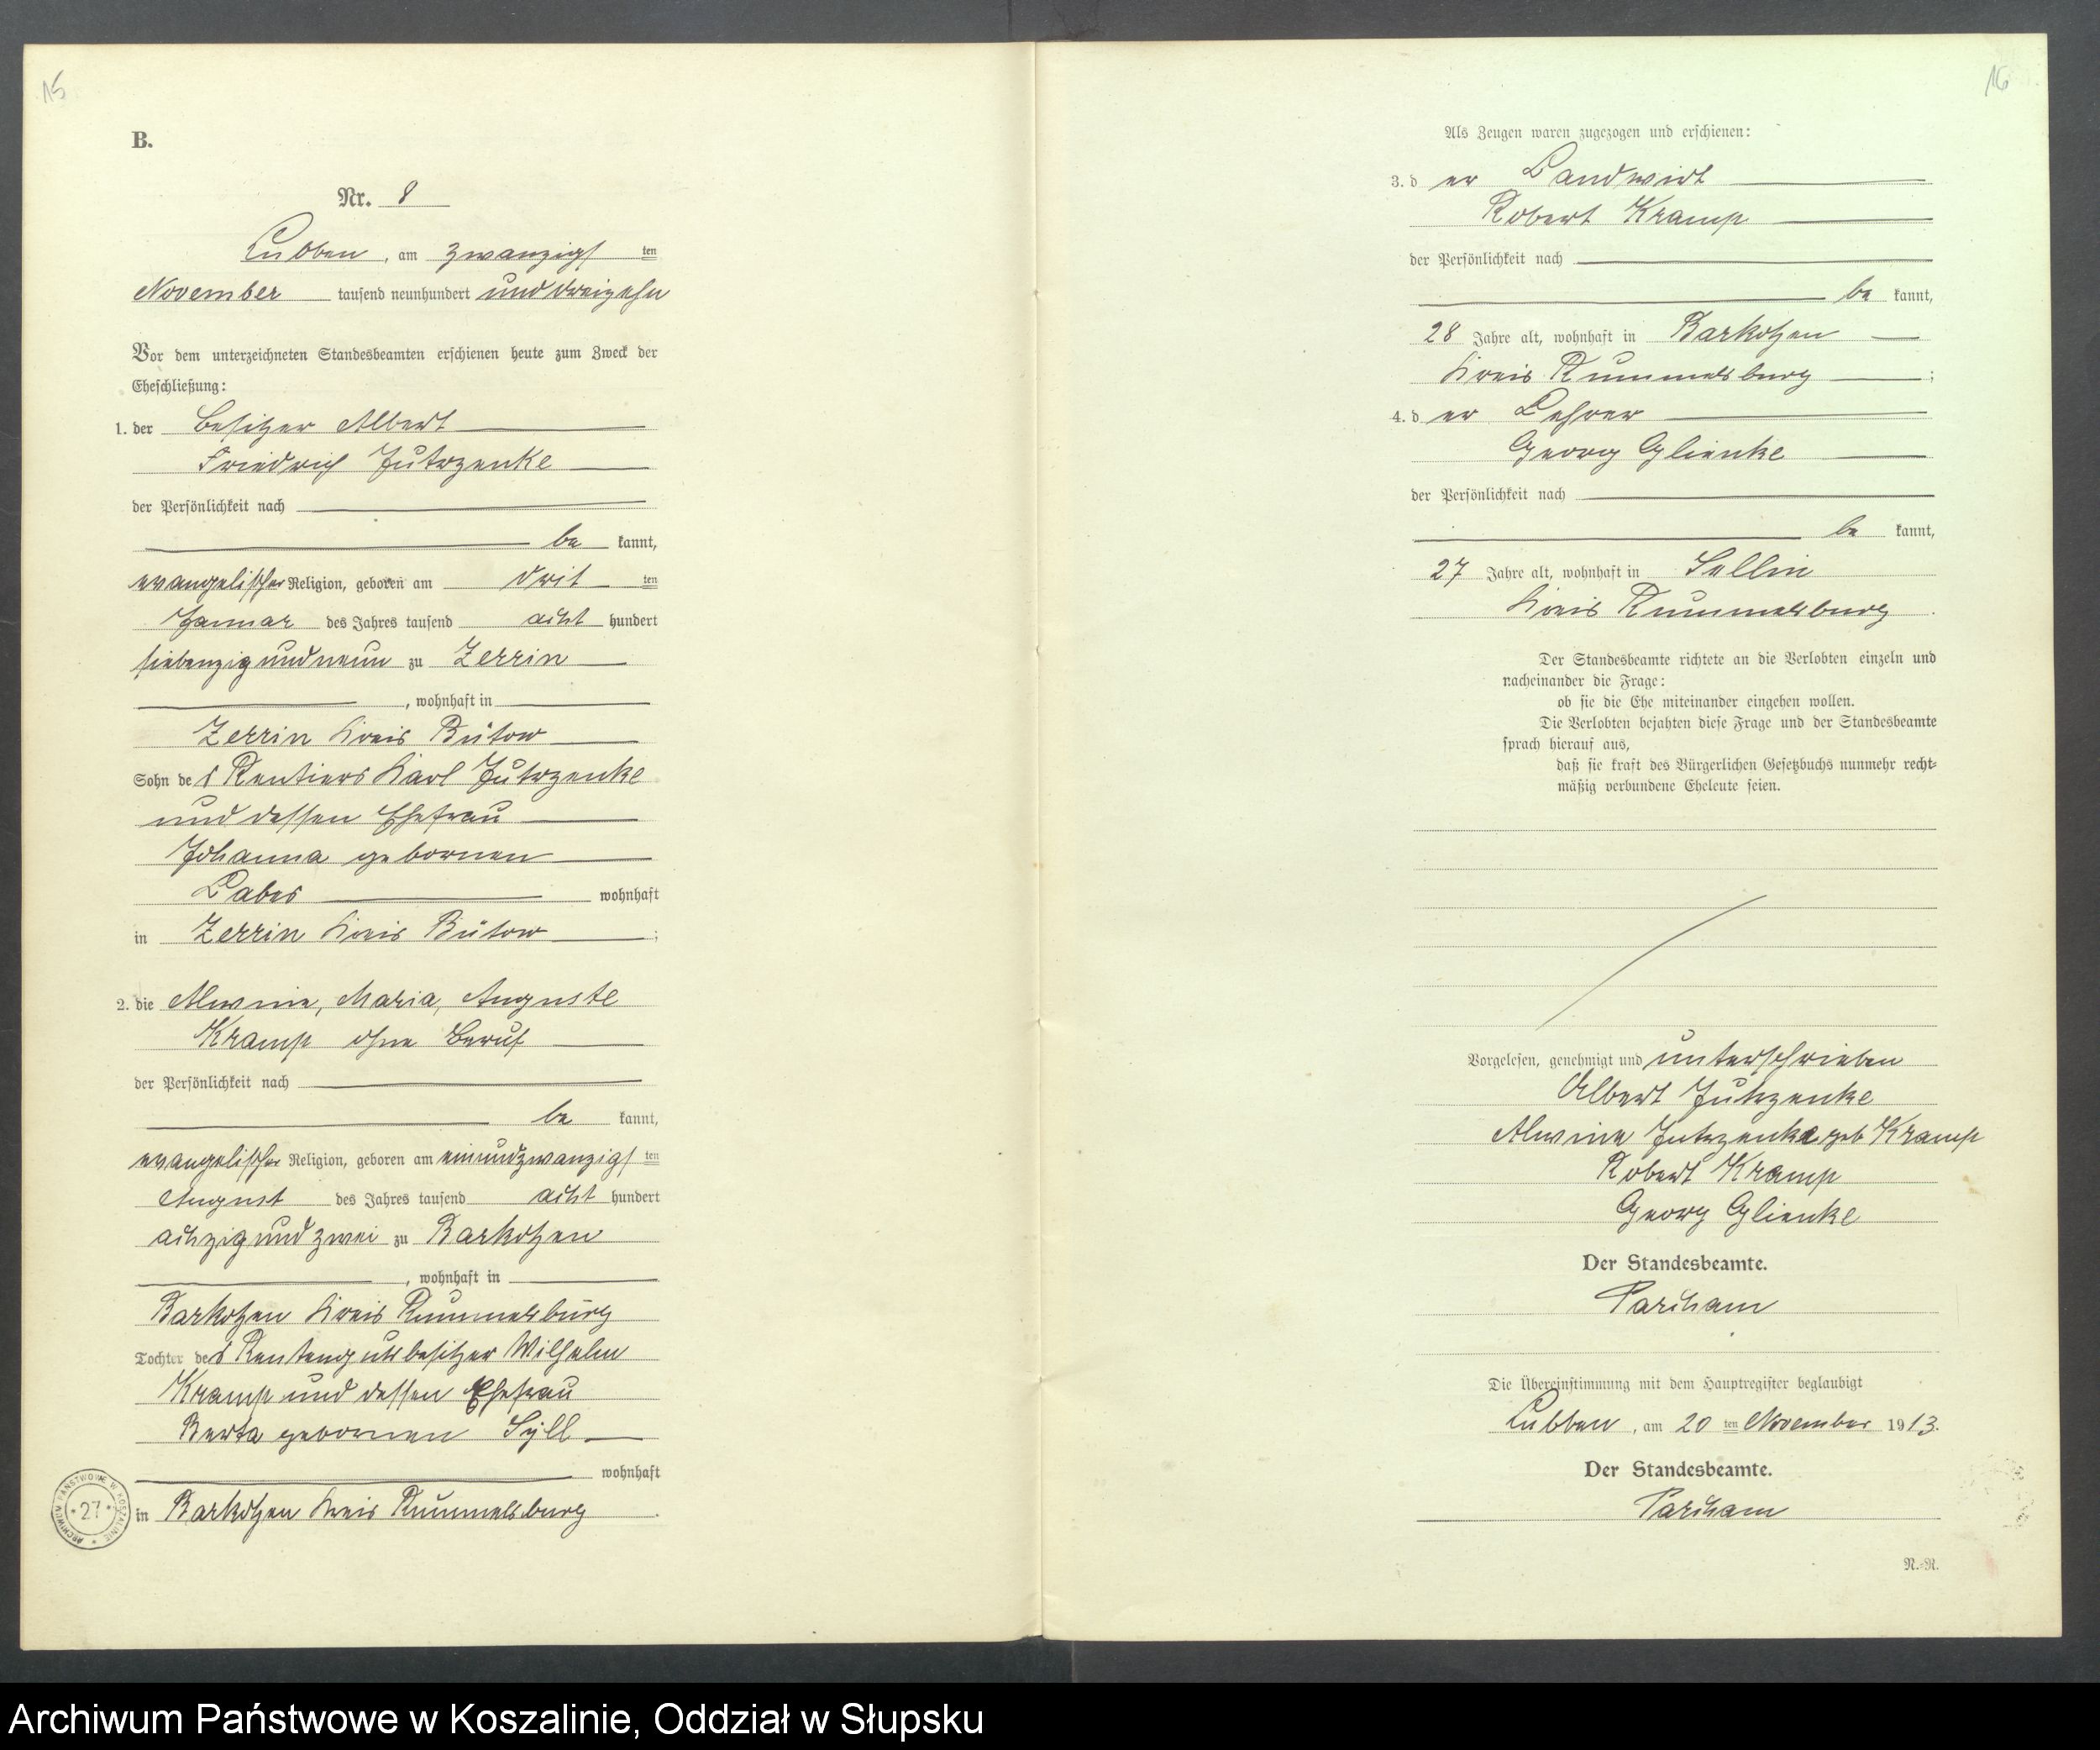 15
B.
Nr. 8
Lubben, am zwanzigsten
November tausend neunhundert und dreizehn
Vor dem unterzeichneten Standesbeamten erschienen heute zum Zweck der
Eheschließung:
1. der Besitzer Albert
Friedrich Jutrzenke
der Persönlichkeit nach
be kannt,
evangelischer Religion, geboren am dritten
Januar des Jahres tausend acht hundert
siebenzig und neun zu Zerrin
, wohnhaft in
Zerrin Kreis Bütow
Sohn des Rentiers Karl Jutrzenke
und dessen Ehefrau
Johanna gebornen
Labes wohnhaft
in Zerrin Kreis Bütow ;
2. die Alwine, Maria, Auguste
Kramp ohne Beruf
der Persönlichkeit nach
be kannt,
evangelischer Religion, geboren am einundzwanzigsten
August des Jahres tausend acht hundert
achzig und zwei zu Barkotzen
, wohnhaft in
Barkotzen Kreis Rummelsburg
Tochter des Rentengutsbesitzer Wilhelm
Kramp und dessen Ehefrau
Berta gebornen Syll
wohnhaft
in Barkotzen Kreis Rummelsburg .
ARCHIWUM PAŃSTWOWE W KOSZALINIE * 27 *
16
Als Zeugen waren zugezogen und erschienen:
3. der Landwirt
Robert Kramp
der Persönlichkeit nach
be kannt,
28 Jahre alt, wohnhaft in Barkotzen
Kreis Rummelsburg ;
4. der Lehrer
Georg Glienke
der Persönlichkeit nach
be kannt,
27 Jahre alt, wohnhaft in Sellin
Kreis Rummelsburg .
Der Standesbeamte richtete an die Verlobten einzeln und
nacheinander die Frage:
ob sie die Ehe miteinander eingehen wollen.
Die Verlobten bejahten diese Frage und der Standesbeamte
sprach hierauf aus,
daß sie kraft des Bürgerlichen Gesetzbuchs nunmehr recht-
mäßig verbundene Eheleute seien.
Vorgelesen, genehmigt und unterschrieben
Albert Jutrzenke
Alwine Jutrzenke geb Kramp
Robert Kramp
Georg Glienke
Der Standesbeamte.
Parcham
Die Übereinstimmung mit dem Hauptregister beglaubigt
Lubben, am 20ten November 1913.
Der Standesbeamte.
Parcham
N.-R.
Archiwum Państwowe w Koszalinie, Oddział w Słupsku